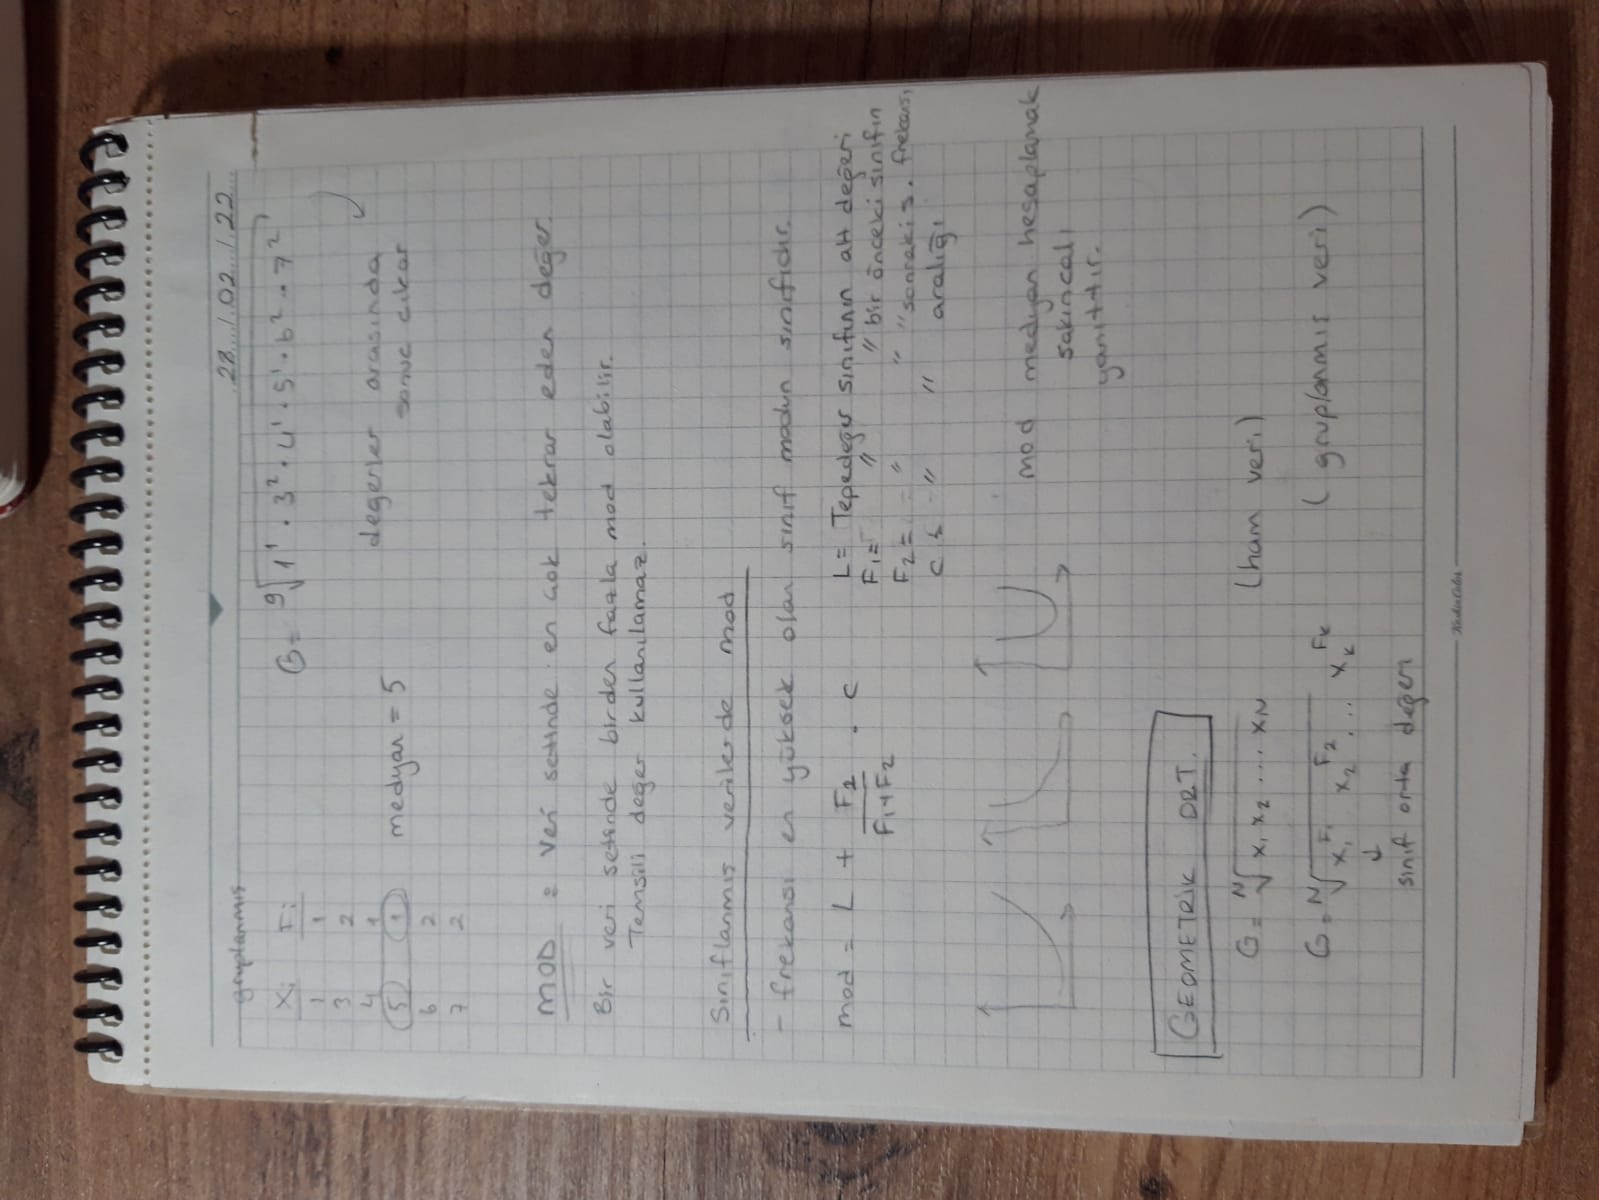 28.../.02.../.22...
gruplanmış
Xi Fi
1 1
3 2
4 1
5 1
6 2
7 2
medyan = 5
G = 9√1¹ . 3² . 4¹ . 5¹ . 6² . 7²
değerler arasında
sonuc cıkar
MOD : veri setinde en çok tekrar eden değer.
Bir veri setinde birden fazla mod olabilir.
Temsili değer kullanılamaz.
Sınıflanmış verilerde mod
- frekansı en yüksek olan sınıf modun sınıfıdır.
mod = L + F2 / F1+F2 . c
L = Tepedeğer sınıfının alt değeri
F1 = " " bir önceki sınıfın
F2 = " " " sonraki s. frekansı
c : " " aralığı
mod medyan hesaplamak
sakıncalı
yanıltır.
GEOMETRİK ORT.
G = N√x1 x2 .... xN (ham veri)
G = N√x1^F1 x2^F2 ... xk^Fk (gruplanmış veri)
↓
sınıf orta değeri